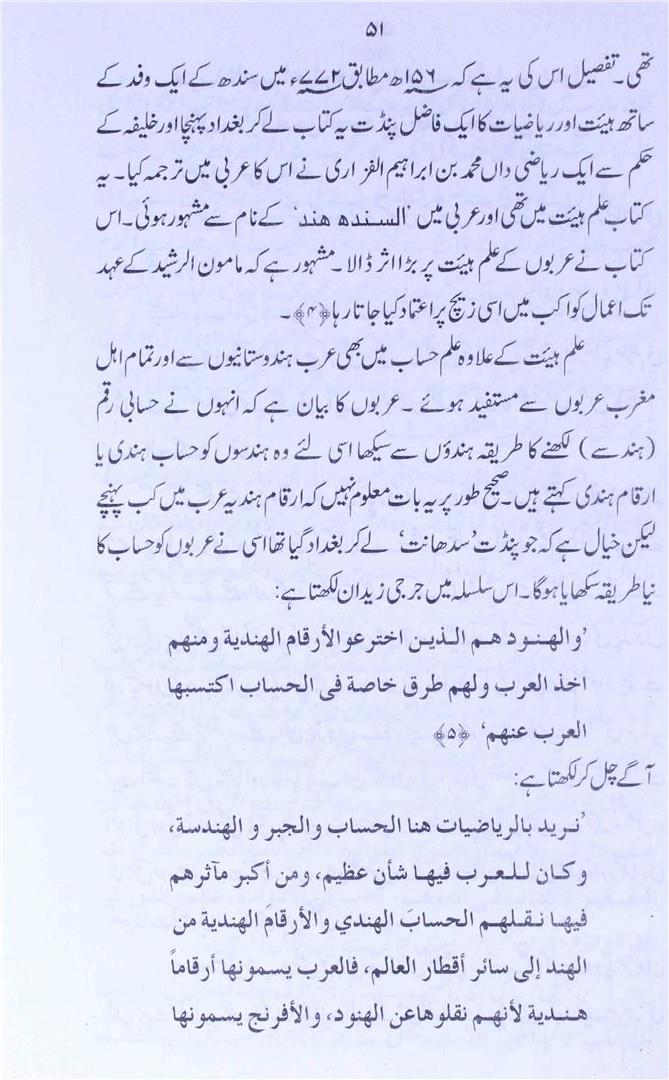 ۵۱
تھی۔ تفصیل اس کی یہ ہے کہ ۱۵۶ھ مطابق ۷۷۲ء میں سندھ کے ایک وفد کے
ساتھ ہیئت اور ریاضیات کا ایک فاضل پنڈت یہ کتاب لے کر بغداد پہنچا اور خلیفہ کے
حکم سے ایک ریاضی داں محمد بن ابراہیم الفزاری نے اس کا عربی میں ترجمہ کیا۔ یہ
کتاب علم ہیئت میں تھی اور عربی میں ’السندھ ھند‘ کے نام سے مشہور ہوئی۔ اس
کتاب نے عربوں کے علم ہیئت پر بڑا اثر ڈالا۔ مشہور ہے کہ مامون الرشید کے عہد
تک اعمال کواکب میں اسی زیچ پر اعتماد کیا جاتا رہا﴿۴﴾۔
علم ہیئت کے علاوہ علم حساب میں بھی عرب ہندوستانیوں سے اور تمام اہل
مغرب عربوں سے مستفید ہوئے ۔ عربوں کا بیان ہے کہ انہوں نے حسابی رقم
(ہندسے) لکھنے کا طریقہ ہندؤں سے سیکھا اسی لئے وہ ہندسوں کو حساب ہندی یا
ارقام ہندی کہتے ہیں۔ صحیح طور پر یہ بات معلوم نہیں کہ ارقام ہندیہ عرب میں کب پہنچے
لیکن خیال ہے کہ جو پنڈت ’سدھانت‘ لے کر بغداد گیا تھا اسی نے عربوں کو حساب کا
نیا طریقہ سکھایا ہوگا۔ اس سلسلہ میں جرجی زیدان لکھتا ہے:
’والهنود هم الذين اخترعو الأرقام الهندية ومنهم
اخذ العرب ولهم طرق خاصة فى الحساب اكتسبها
العرب عنهم‘ ﴿۵﴾
آگے چل کر لکھتا ہے:
’نريد بالرياضيات هنا الحساب والجبر و الهندسة،
وكان للعرب فيها شأن عظيم، ومن أكبر مآثرهم
فيها نقلهم الحسابَ الهندي والأرقامَ الهندية من
الهند إلى سائر أقطار العالم، فالعرب يسمونها أرقاماً
هندية لأنهم نقلوهاعن الهنود، والأفرنج يسمونها